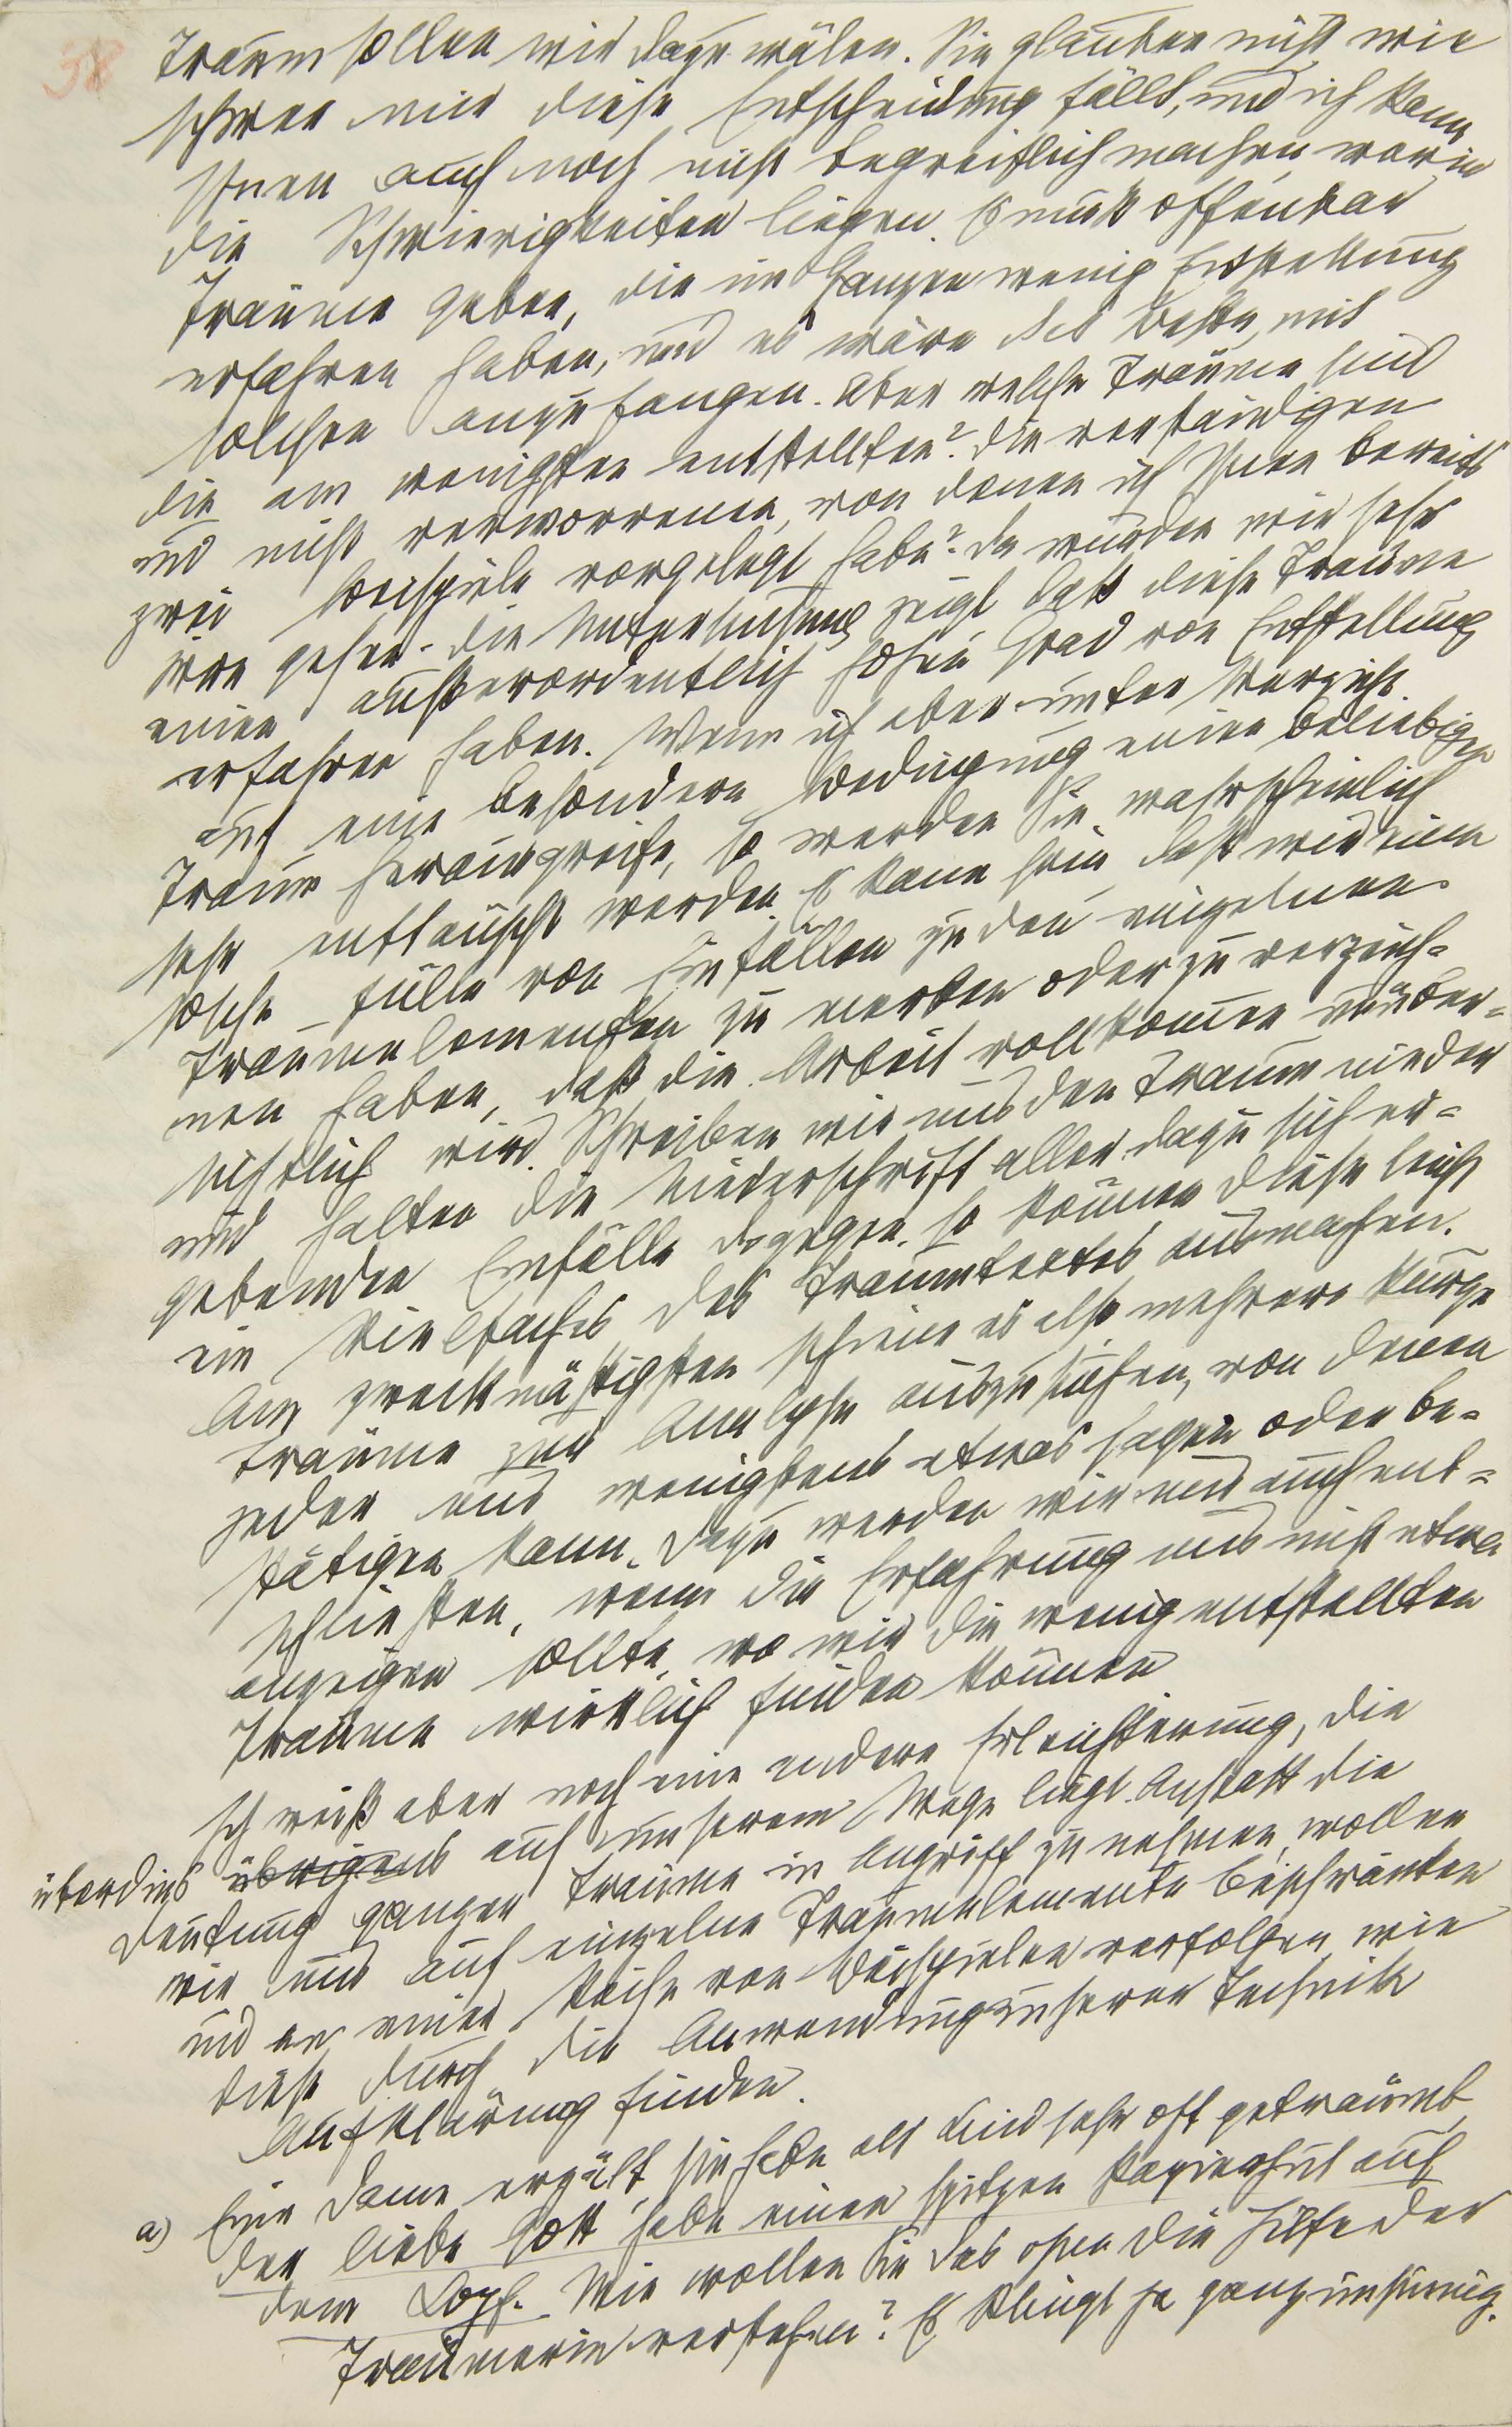 38
Traum sollen wir dazu wälen. Sie glauben nicht wie
schwer mir diese Entscheidung fällt, und ich kann
Ihnen auch noch nicht begreiflich machen, worin
die Schwierigkeiten liegen. Es muß offenbar
Träume geben, die im Ganzen wenig Entstellung
erfahren haben, und es wäre das Beste, mit
solchen anzufangen. Aber welche Träume sind
die am wenigsten entstellten? Die verständigen
und nicht verworrenen, von denen ich Ihnen bereits
zwei Beispiele vorgelegt habe? Da würden wir sehr
irre gehen. Die Untersuchung zeigt, daß diese Träume
einen außerordentlich hohen Grad von Entstellung
erfahren haben. Wenn ich aber unter Verzicht
auf eine besondere Bedingung einen beliebigen
Traum herausgreife, so werden Sie wahrscheinlich
sehr enttäuscht werden. Es kann sein, daß wir eine
solche Fülle von Einfällen zu den einzelnen
Traumelementen zu merken oder zu verzeich-
nen haben, daß die Arbeit vollkommen unüber-
sichtlich wird. Schreiben wir uns den Traum nieder
und halten die Niederschrift aller dazu sich er-
gebenden Einfälle dagegen, so können diese leicht
ein Vielfaches des Traumtextes ausmachen.
Am zweckmäßigsten schiene es also mehrere kurze
Träume zur Analyse auszusuchen, von denen
jeder uns wenigstens etwas sagen oder be-
stätigen kann. Dazu werden wir uns auch ent-
schließen, wenn die Erfahrung uns nicht etwa
anzeigen sollte, wo wir die wenig entstellten
Träume wirklich finden können
Ich weiß aber noch eine andere Erleichterung, die
überdies übrigens auf unserem Wege liegt. Anstatt die
Deutung ganzer Träume in Angriff zu nehmen, wollen
wir uns auf einzelne Traumelemente beschränken
und an einer Reihe von Beispielen verfolgen, wie
diese durch die Anwendung unserer Technik
Aufklärung finden.
a) Eine Dame erzält, sie habe als Kind sehr oft geträumt,
der liebe Gott habe einen spitzen Papierhut auf
dem Kopf. Wie wollen Sie das ohne die Hilfe der
Träumerin verstehen? Es klingt ja ganz unsinnig.